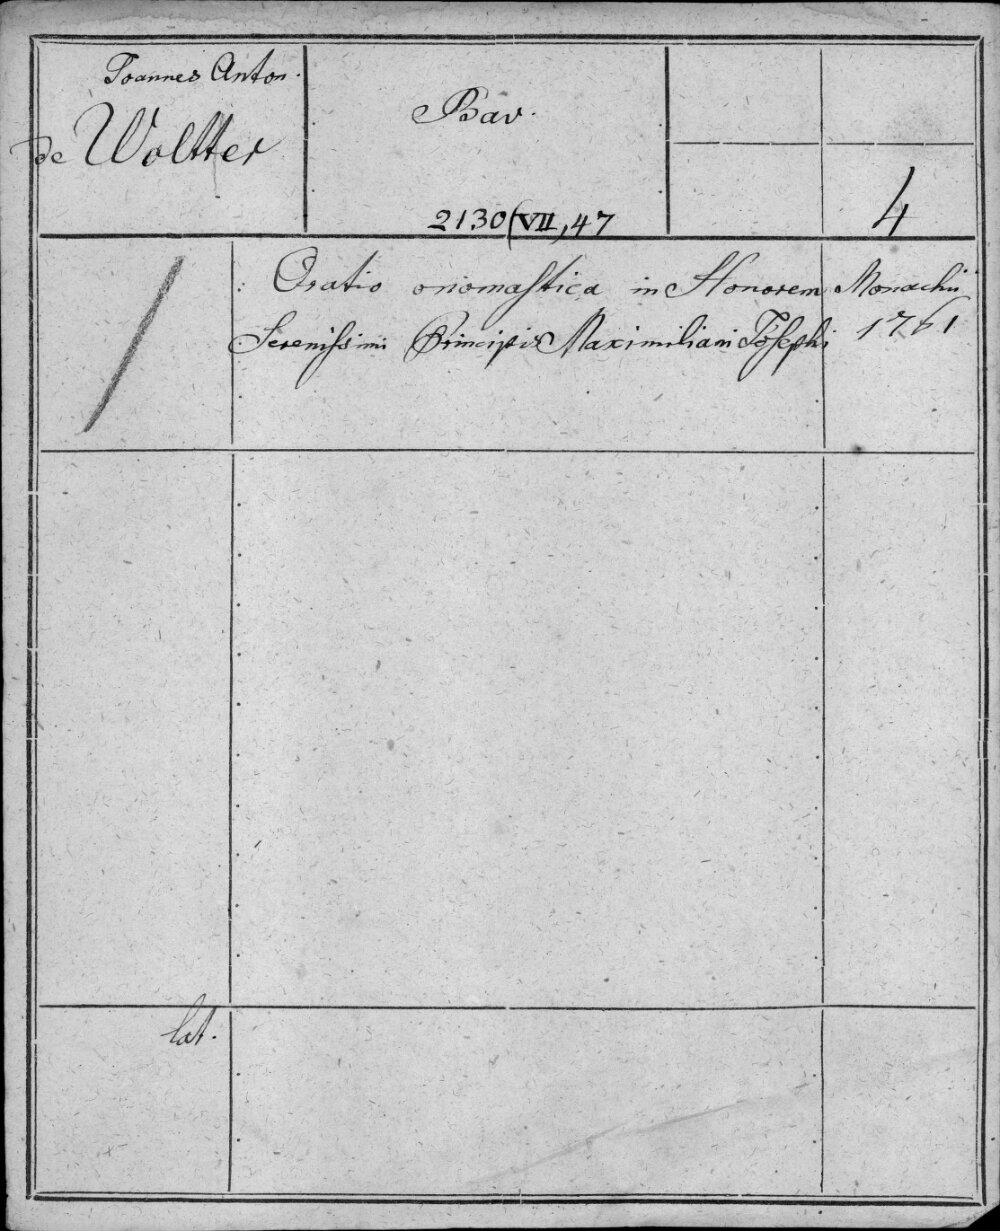 Joannes Anton.
de Woltter
Bav.
2130(VII,47
4
Oratio onomastica in Honorem
Serenissimi Principis Maximiliani Josephi
Monachii
1761
lat.